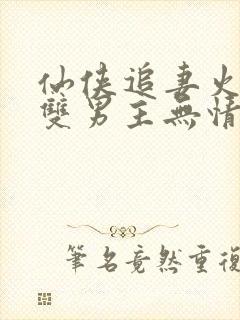 仙俠追妻火
雙男主無情
筆名竟然重複